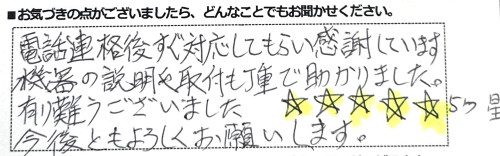 ■お気づきの点がございましたら、どんなことでもお聞かせください。
電話連格後すぐ対応してもらい感謝しています
機器の説明や取付も丁重で助かりました。
有り難うございました ☆☆☆☆☆5つ星
今後ともよろしくお願いします。